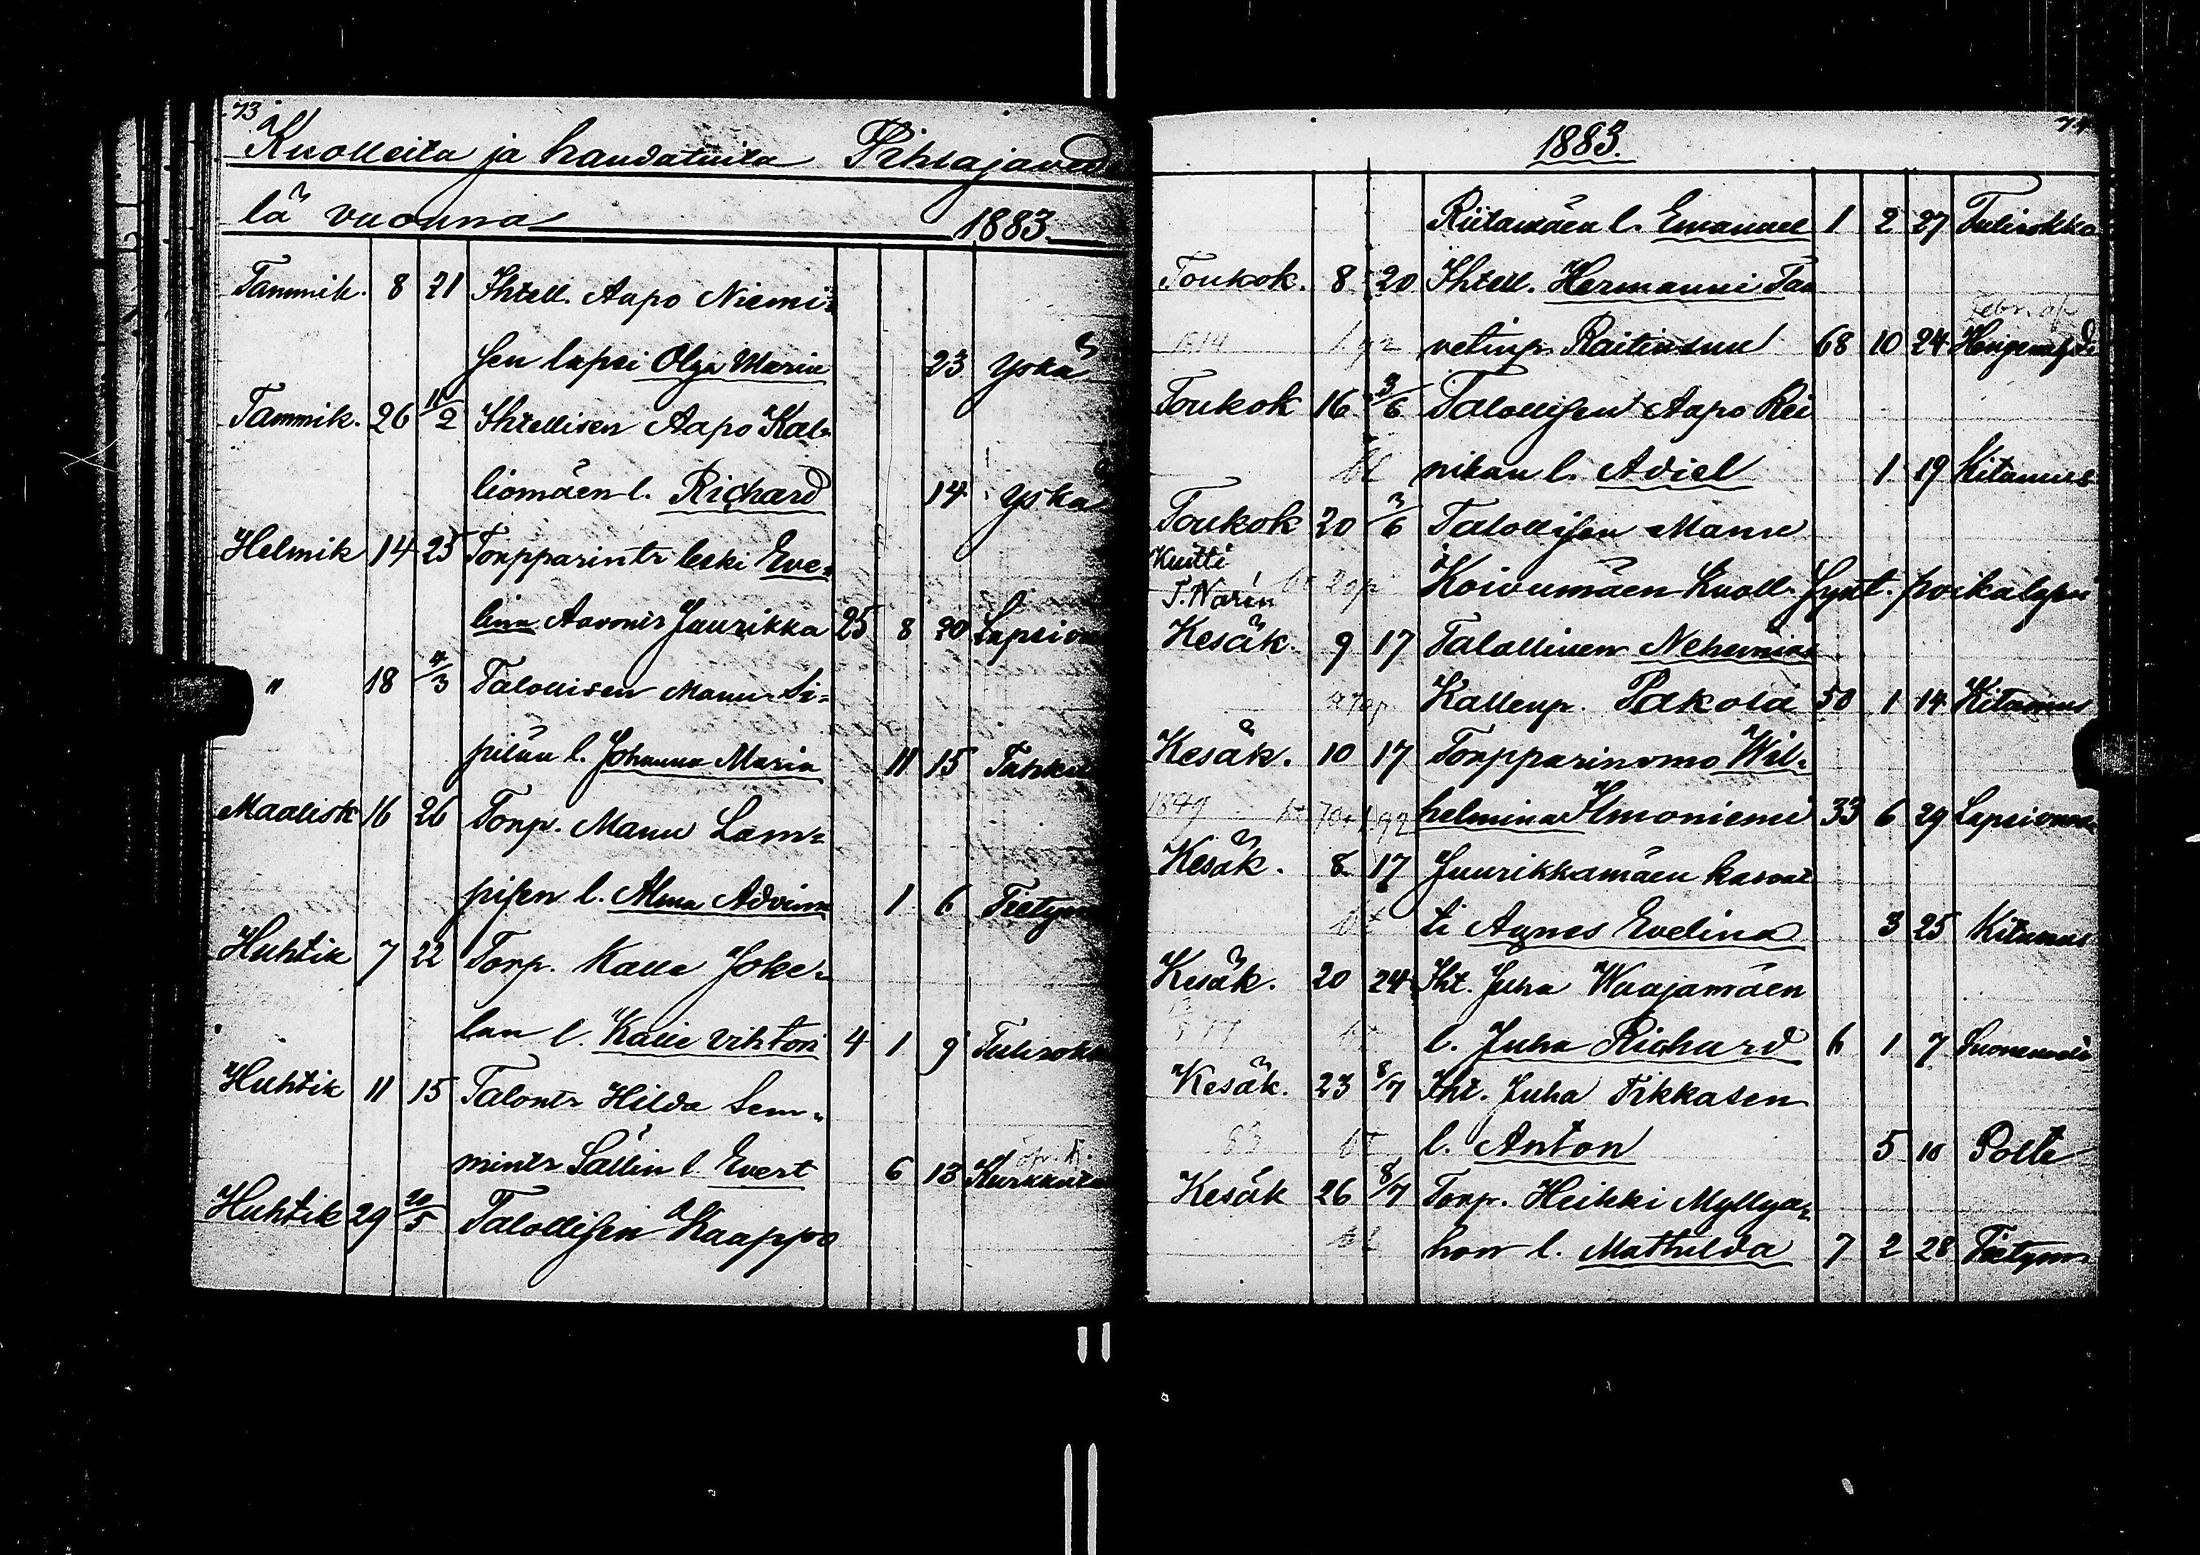 73
Kuolleita ja haudatuita Pihlajaved
lä vuonna 1883.
Tammik. 8 21 Ihtell. Aapo Niemi-
sen lapsi Olga Maria 23 Yskä
Tammik. 26 11/2 Ihtellisen Aapo Kal-
liomäen l. Richard 14 Yskä
Helmik 14 25 Torpparintr leski Eve-
lina Aavontr Juurikka 25 8 20
" 18 4/3 Talollisen Manu Si-
pilän l. Johanna Maria 11 15
Maalisk 16 26 Torp. Manu Lam-
pisen l. Alma Advina 1 6 Tietym
Huhtik 7 22 Torp. Kalle Joke-
lan l. Kalle Vihtori 4 1 9 Tulirokk
Huhtik 11 15 Talontr Hilda Sem-
mintr Sällin l. Evert 6 13
Huhtik 29 20/5 Talollisen Kaappo
74
1883.
Riitamäen l. Emanuel 1 2 27 Tulirokko
Toukok. 8 20 Ihtell. Hermanni Taa
vetinp. Raitinsuu 68 10 24
Toukok 16 3/6 Talollisen Aapo Rei
nikan l. Adiel 1 19 Kitumus
Toukok 20 3/6 Talollisen Manu
Kuitti
T. Norén
Koivumäen kuoll. synt. poikalapsi
Kesäk. 9 17 Talollinen Nehemias
Kallenp. Pakola 50 1 14 Kitumus
Kesäk. 10 17 Torpparinvmo Wil-
1849 helmina Ilmoniemi 33 6 29 Lapsivuode
Kesäk. 8 17 Juurikkamäen kasvat
ti Agnes Evelina 3 25 Kitumus
Kesäk. 20 24 Iht. Juha Waajamäen
l. Juha Richard 6 1 7
Kesäk. 23 8/7 Iht. Juha Tikkasen
83 l. Anton 5 10 Polte
Kesäk 26 8/7 Torp. Heikki Myllya-
hon l. Mathilda 7 2 28 Tietym.